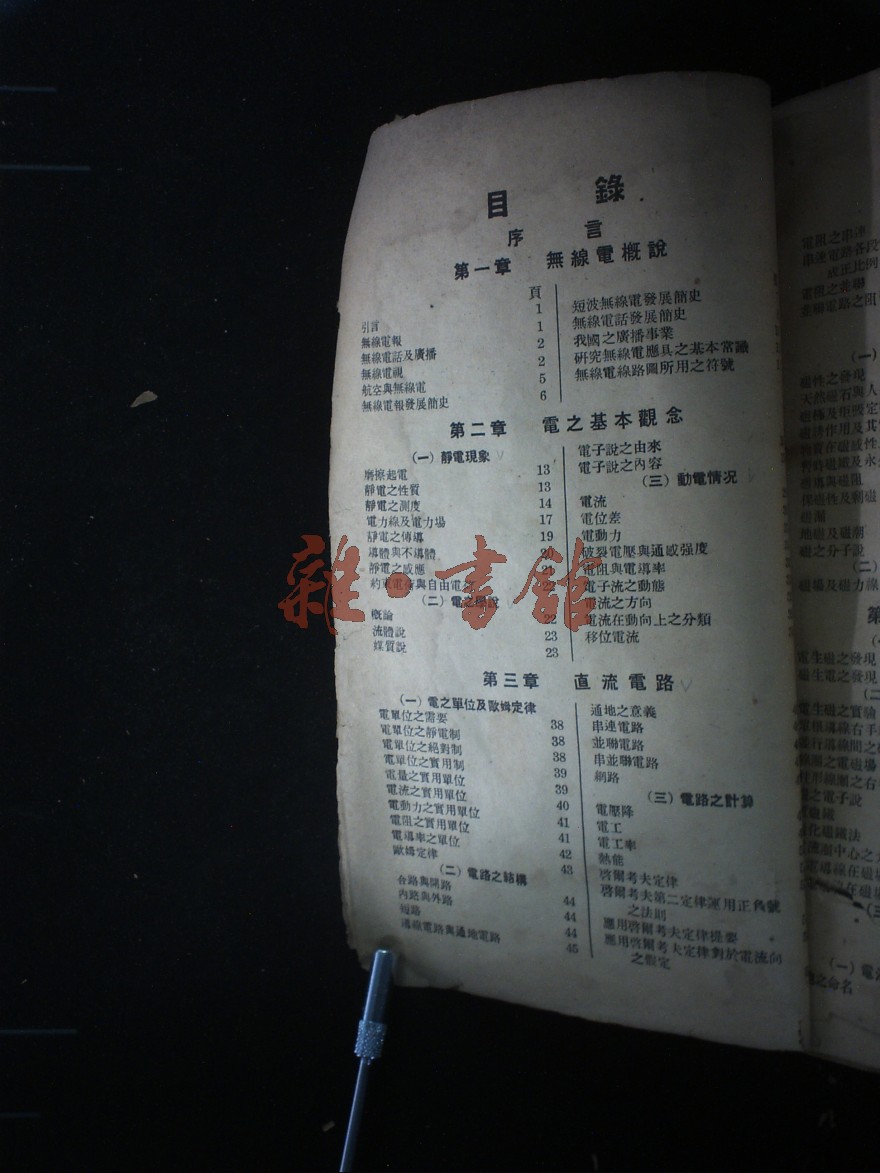 目錄
序言
第一章 無線電概說
頁
引言 1
無線電報 1
無線電話及廣播 2
無線電視 2
航空與無線電 5
無線電報發展簡史 6
短波無線電發展簡史
無線電話發展簡史
我國之廣播事業
研究無線電應具之基本常識
無線電線路圖所用之符號
第二章 電之基本觀念
(一)靜電現象
摩擦起電 13
靜電之性質 13
靜電之測度 14
電力線及電力場 17
靜電之傳導 19
導體與不導體 20
靜電之感應 21
約束電荷與自由電荷
(二)電之學說
概論 22
流體說 23
媒質說 23
電子說之由來
電子說之內容
(三)動電情况
電流
電位差
電動力
破裂電壓與通感强度
電阻與電導率
電子流之動態
電流之方向
電流在動向上之分類
移位電流
第三章 直流電路
(一)電之單位及歐姆定律
電單位之需要 38
電單位之靜電制 38
電單位之絕對制 38
電單位之實用制 39
電量之實用單位 39
電流之實用單位 40
電動力之實用單位 41
電阻之實用單位 41
電導率之單位 42
歐姆定律 43
(二)電路之結構
合路與開路 44
內路與外路 44
短路 44
導線電路與通地電路 45
通地之意義
串連電路
並聯電路
串並聯電路
網路
(三)電路之計算
電壓降
電工
電工率
熱能
啓爾考夫定律
啓爾考夫第二定律運用正負號
之法則
應用啓爾考夫定律提要
應用啓爾考夫定律對於電流向
之假定
電阻之串連
串連電路各段
或正比例
電阻之並聯
並聯電路之阻
(一)
磁性之發現
天然磁石與人
磁極及
暫時磁鐵及永
磁導與磁阻
地磁及磁
磁之分子說
(二)
磁場及磁力線
第
電生磁之發現
磁生電之發現
(二
電生磁之實驗
之電子說
化磁鐵法
(一)電
之命名
雜·書館